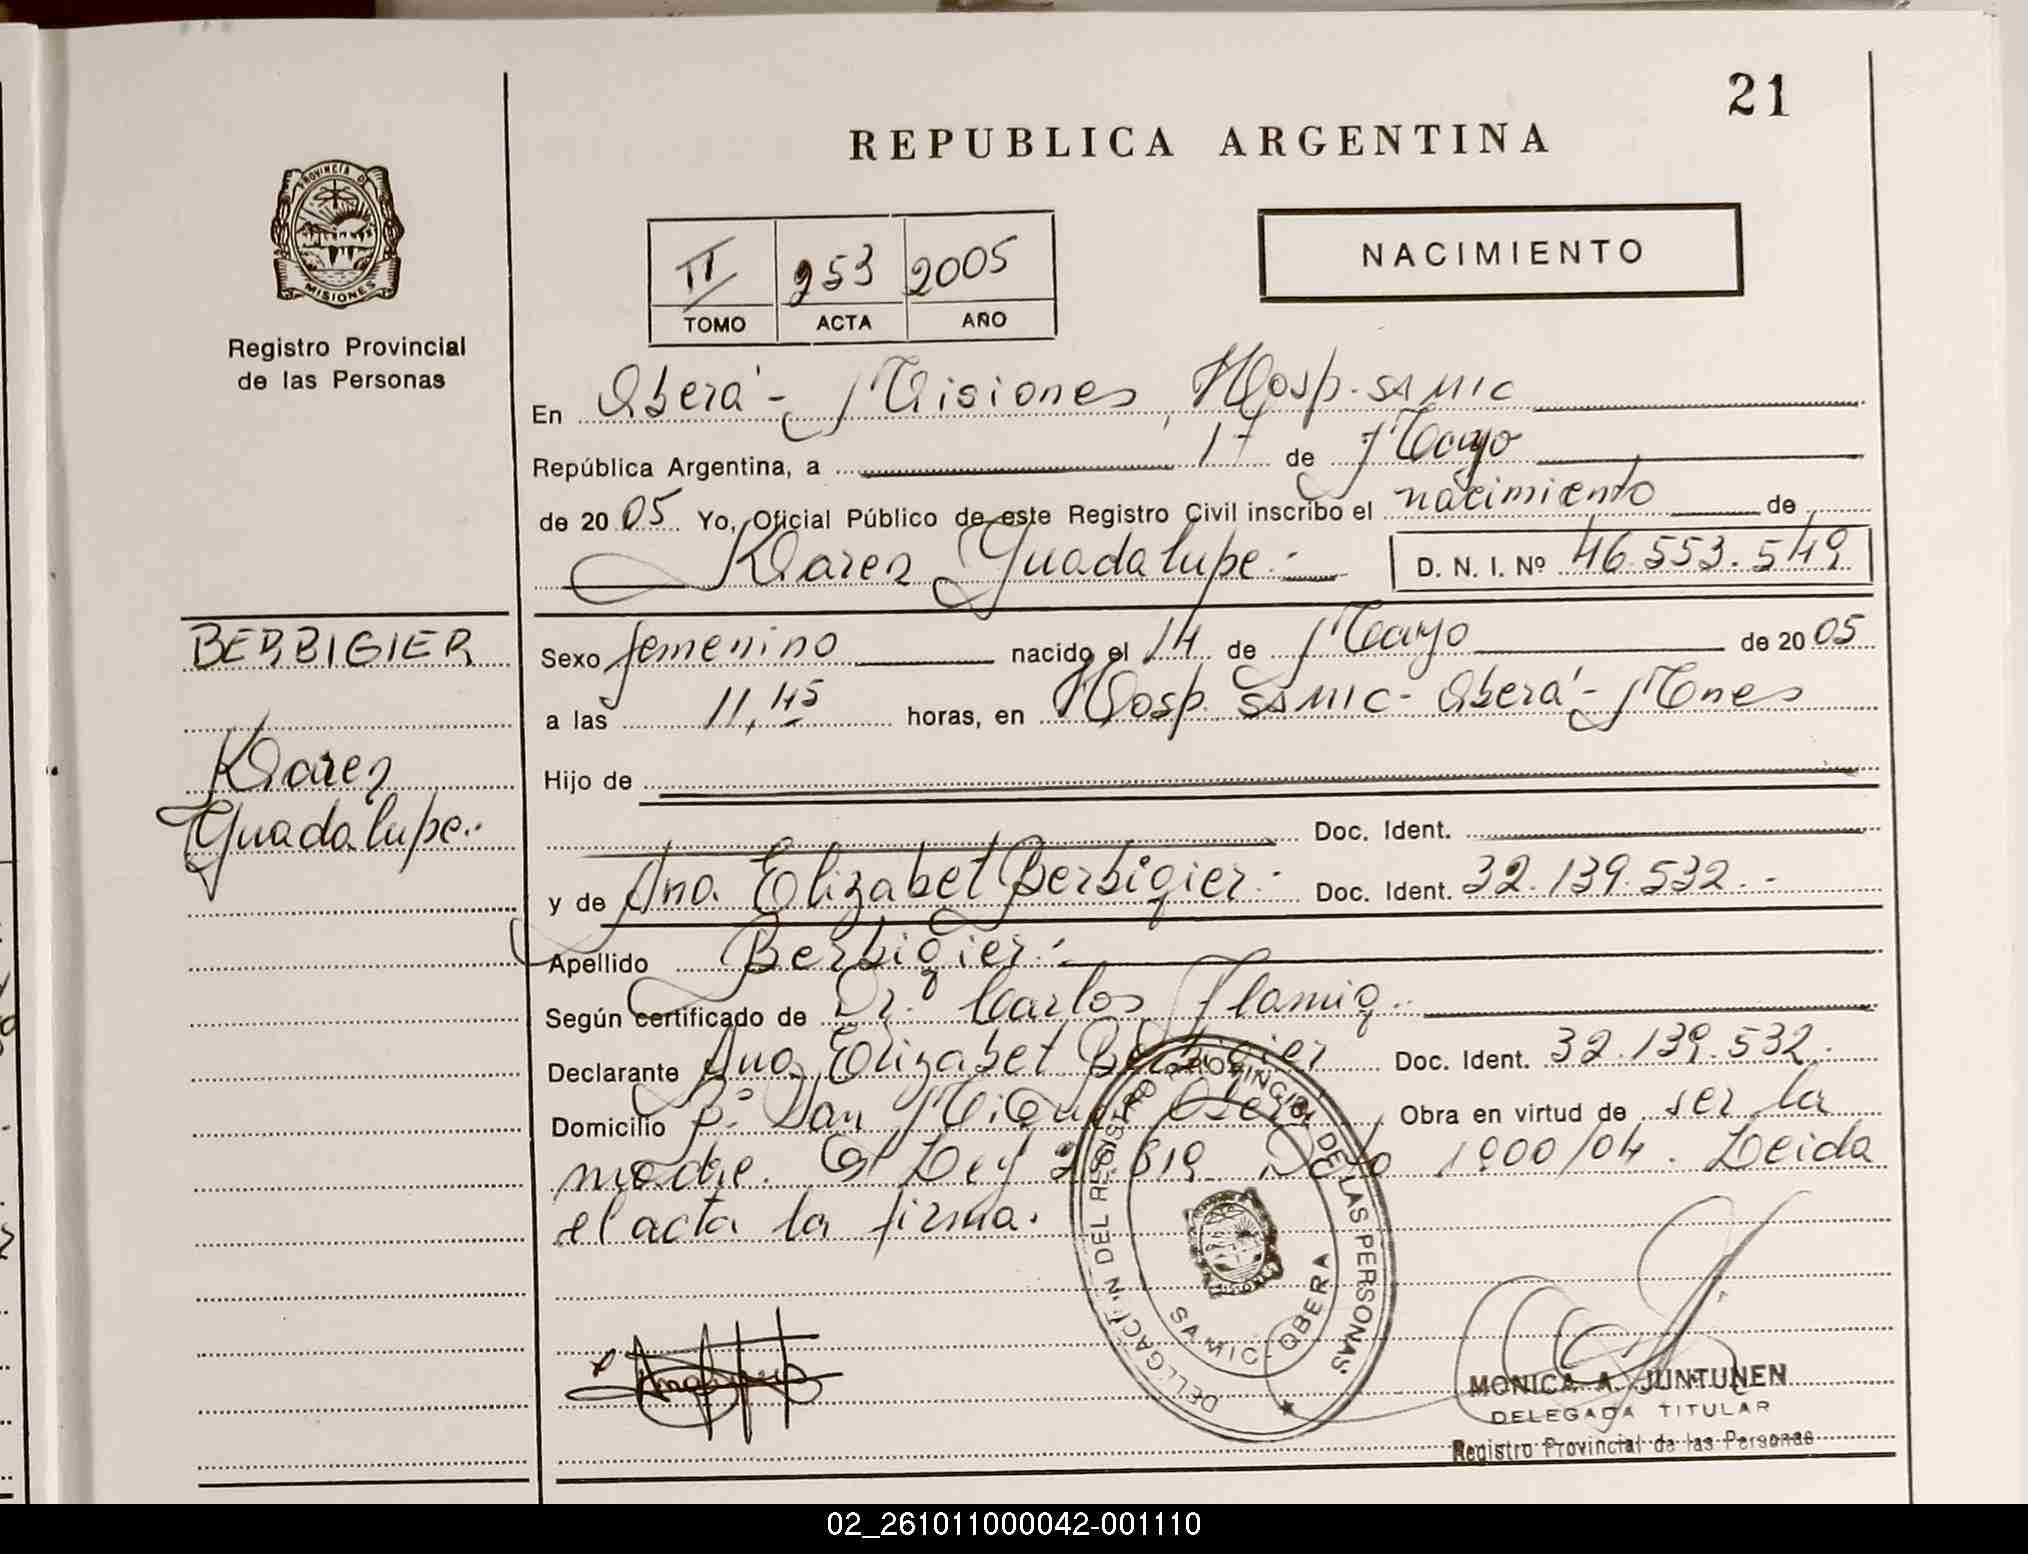 21
REPUBLICA ARGENTINA
PROVINCIA DE
MISIONES
Registro Provincial
de las Personas
II 253 2005
TOMO ACTA AÑO
NACIMIENTO
En Oberá - Misiones, Hosp. SAMIC
República Argentina, a 17 de Mayo
de 2005 Yo, Oficial Público de este Registro Civil inscribo el nacimiento de
Karen Guadalupe.- D. N. I. Nº 46.553.549
BERBIGIER
Karen
Guadalupe.-
Sexo femenino nacido el 14 de Mayo de 2005
a las 11,45 horas, en Hosp. SAMIC - Oberá - Mnes
Hijo de
Doc. Ident.
y de Ana Elizabet Berbigier.- Doc. Ident. 32.139.532.-
Apellido Berbigier.-
Según certificado de Dr. Carlos Flamig.-
Declarante Ana Elizabet Berbigier Doc. Ident. 32.139.532.
Domicilio Bº San Miguel Oberá, Obra en virtud de ser la
madre. Ley 1900/04. Leida
el acta la firma.
DELEGACION DEL REGISTRO PROVINCIAL DE LAS PERSONAS
SAMIC - OBERA
MONICA A. JUNTUNEN
DELEGADA TITULAR
Registro Provincial de las Personas
02_261011000042-001110